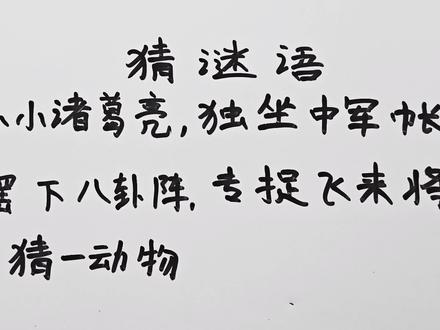 猜谜语
小小诸葛亮，独坐中军帐
摆下八卦阵，专捉飞来将
猜一动物